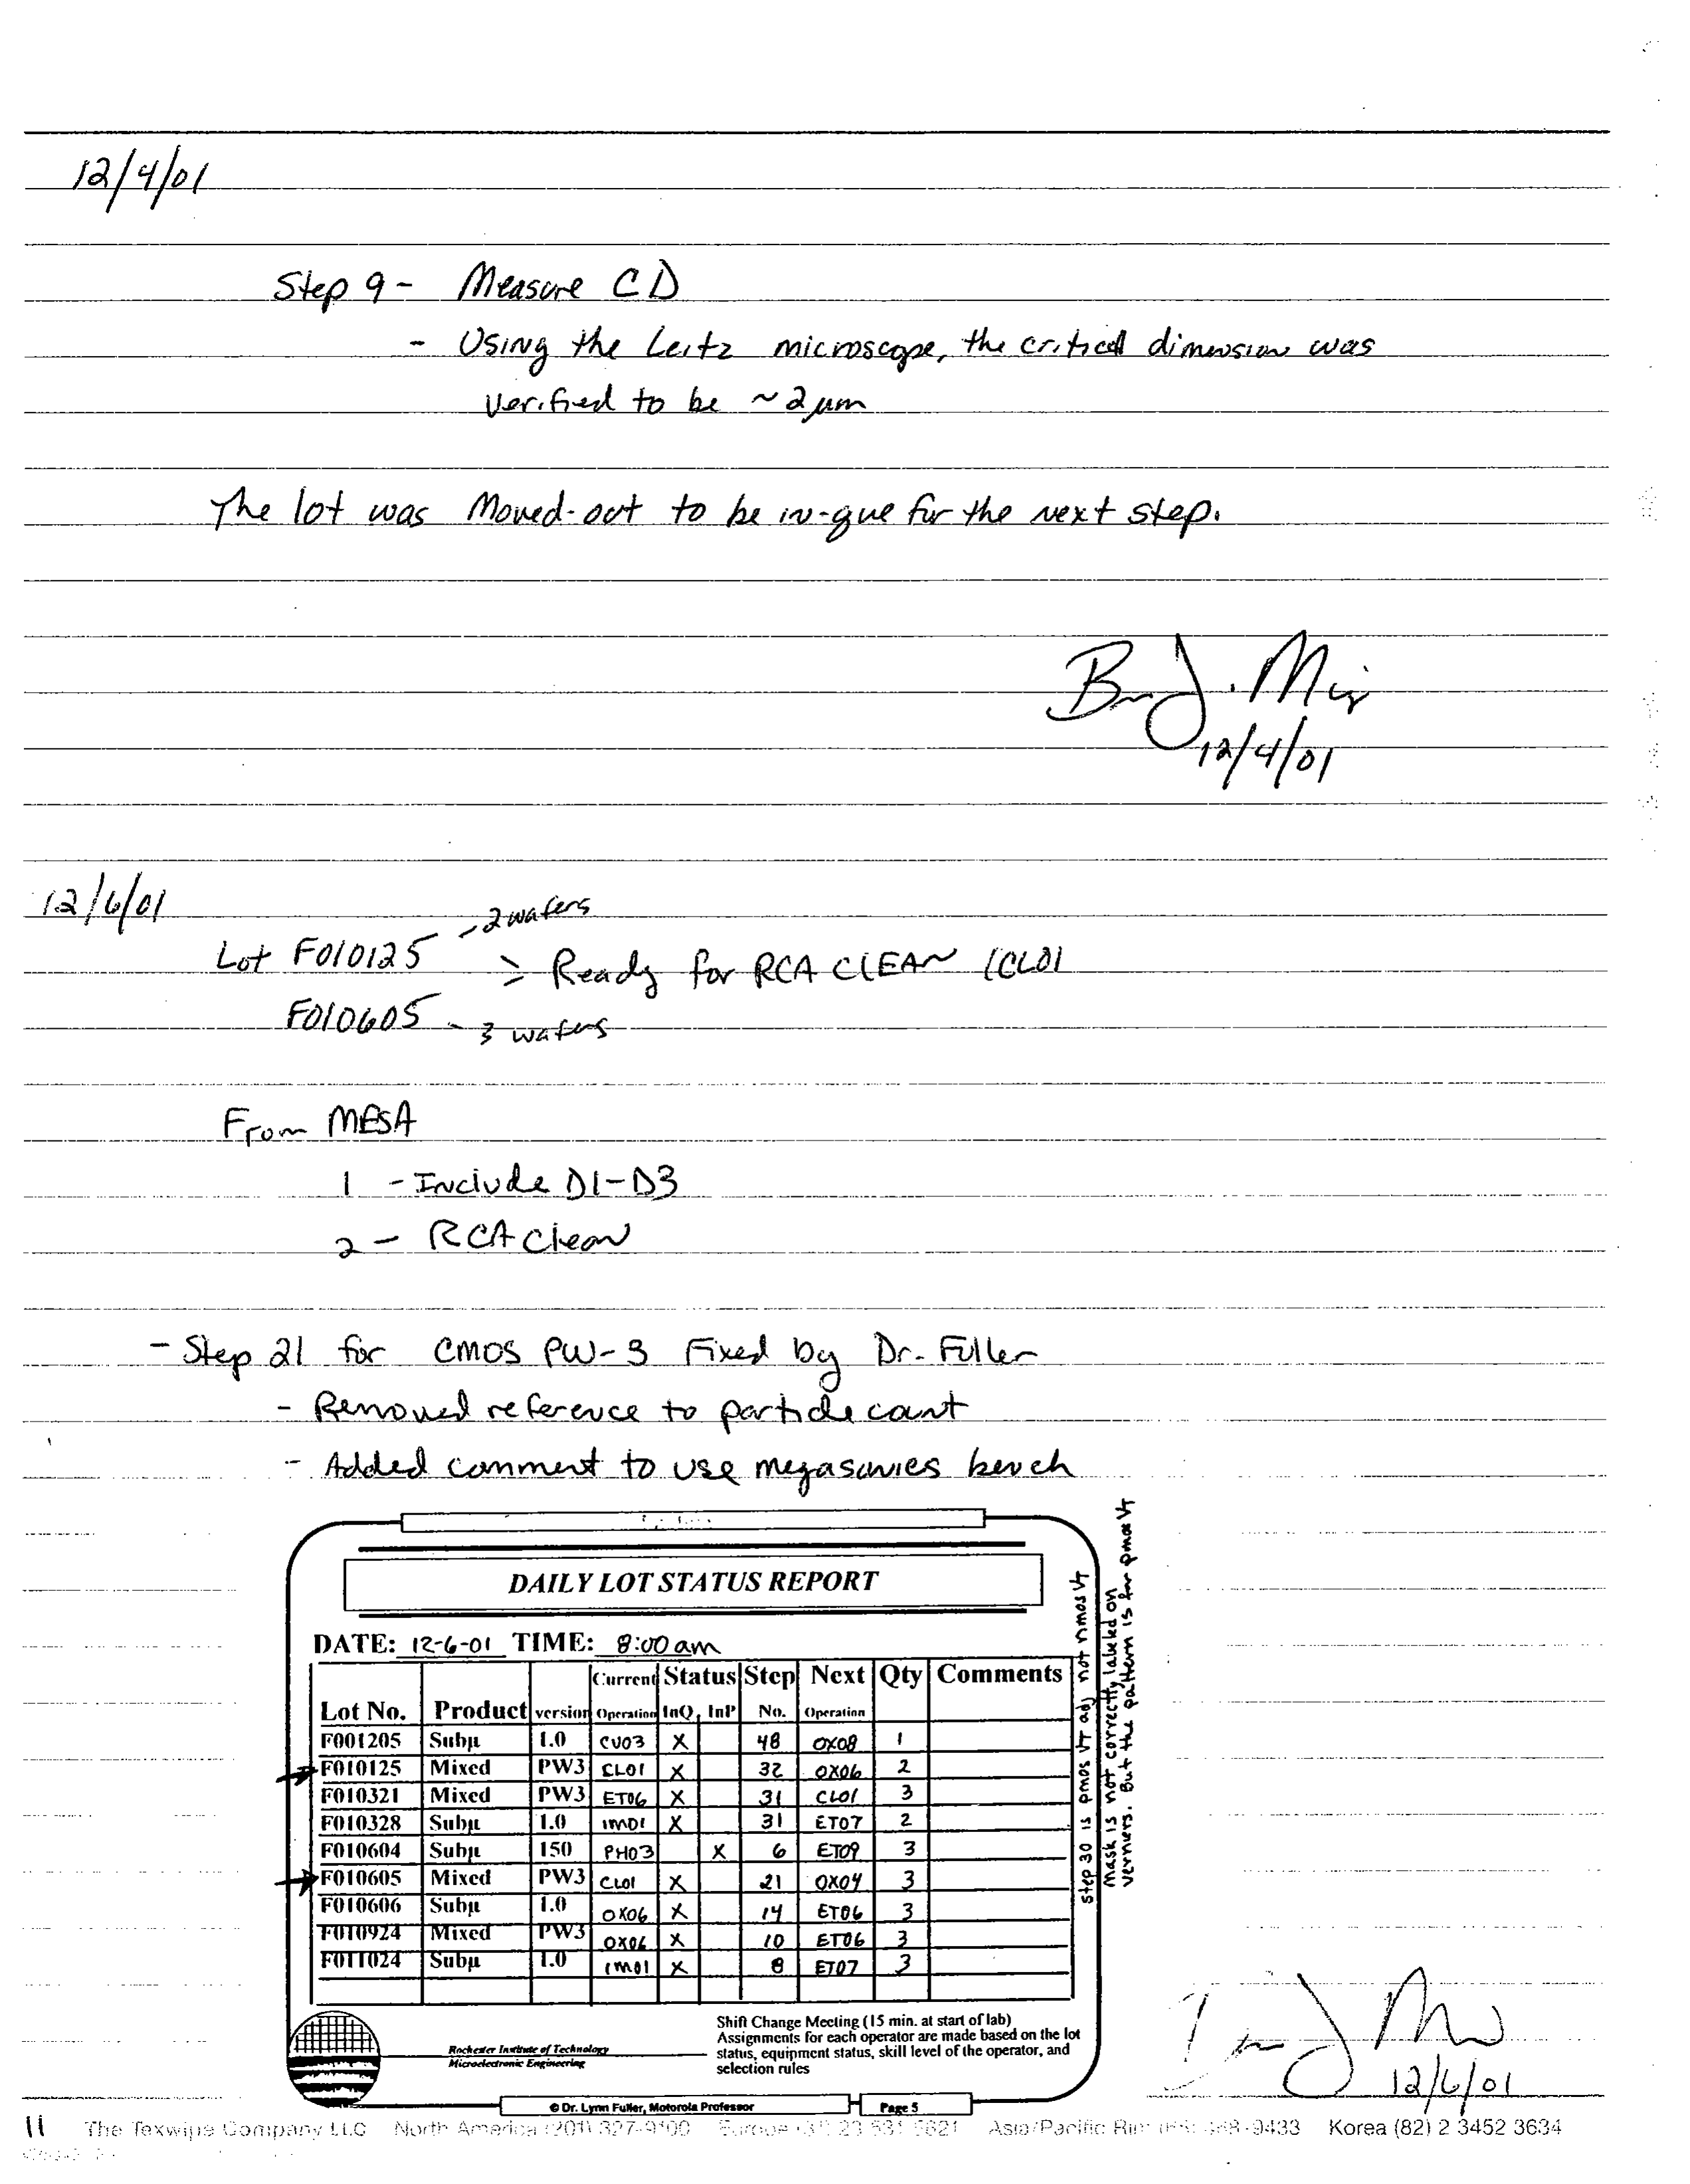 12/4/01
Step 9 - Measure CD
- Using the Leitz microscope, the critical dimension was
verified to be ~2µm
The lot was Moved-out to be in-que for the next step.
12/4/01
12/6/01
Lot F010125 - 2 wafers
> Ready for RCA CLEAN /CL01
F010605 - 3 wafers
From MESA
1 - Include D1-D3
2 - RCA Clean
- Step 21 for CMOS PW-3 Fixed by Dr. Fuller
- Removed reference to particle count
- Added comment to use megasonics bench
DAILY LOT STATUS REPORT
DATE: 12-6-01 TIME: 8:00 am
Current Status Step Next Qty Comments
Lot No. Product version Operation InQ InP No. Operation
F001205 Subµ 1.0 CV03 X 48 OX08 1
F010125 Mixed PW3 CL01 X 32 OX06 2
F010321 Mixed PW3 ET06 X 31 CL01 3
F010328 Subµ 1.0 IM01 X 31 ET07 2
F010604 Subµ 150 PH03 X 6 ET09 3
F010605 Mixed PW3 CL01 X 21 OX04 3
F010606 Subµ 1.0 OX06 X 14 ET06 3
F010924 Mixed PW3 OX06 X 10 ET06 3
F011024 Subµ 1.0 IM01 X 8 ET07 3
step 30 is pmos Vt adj not nmos Vt
mask is not correctly labeled on
verniers. But the pattern is for pmos Vt
Rochester Institute of Technology
Microelectronic Engineering
Shift Change Meeting (15 min. at start of lab)
Assignments for each operator are made based on the lot
status, equipment status, skill level of the operator, and
selection rules
© Dr. Lynn Fuller, Motorola Professor Page 5
12/6/01
11 The Texwipe Company LLC North America (201) 327-9100 Europe Asia/Pacific Rim Korea (82) 2 3452 3634